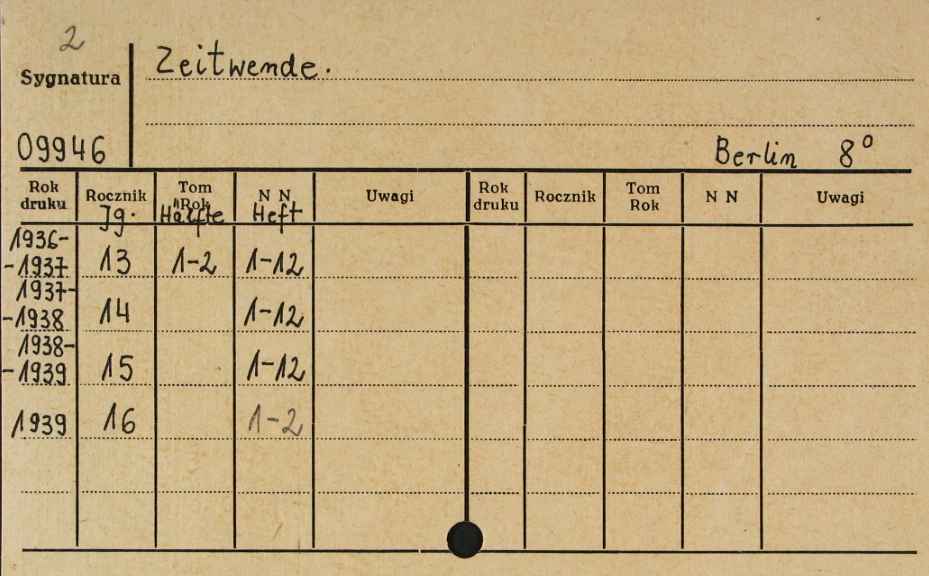 2
Zeitwende.
Sygnatura
09946
Berlin 8°
Rok druku Rocznik Tom Rok N N Uwagi Rok druku Rocznik Tom Rok N N Uwagi
Jg. Hälfte Heft
1936-
-1937 13 1-2 1-12
1937-
-1938 14 1-12
1938-
-1939 15 1-12
1939 16 1-2